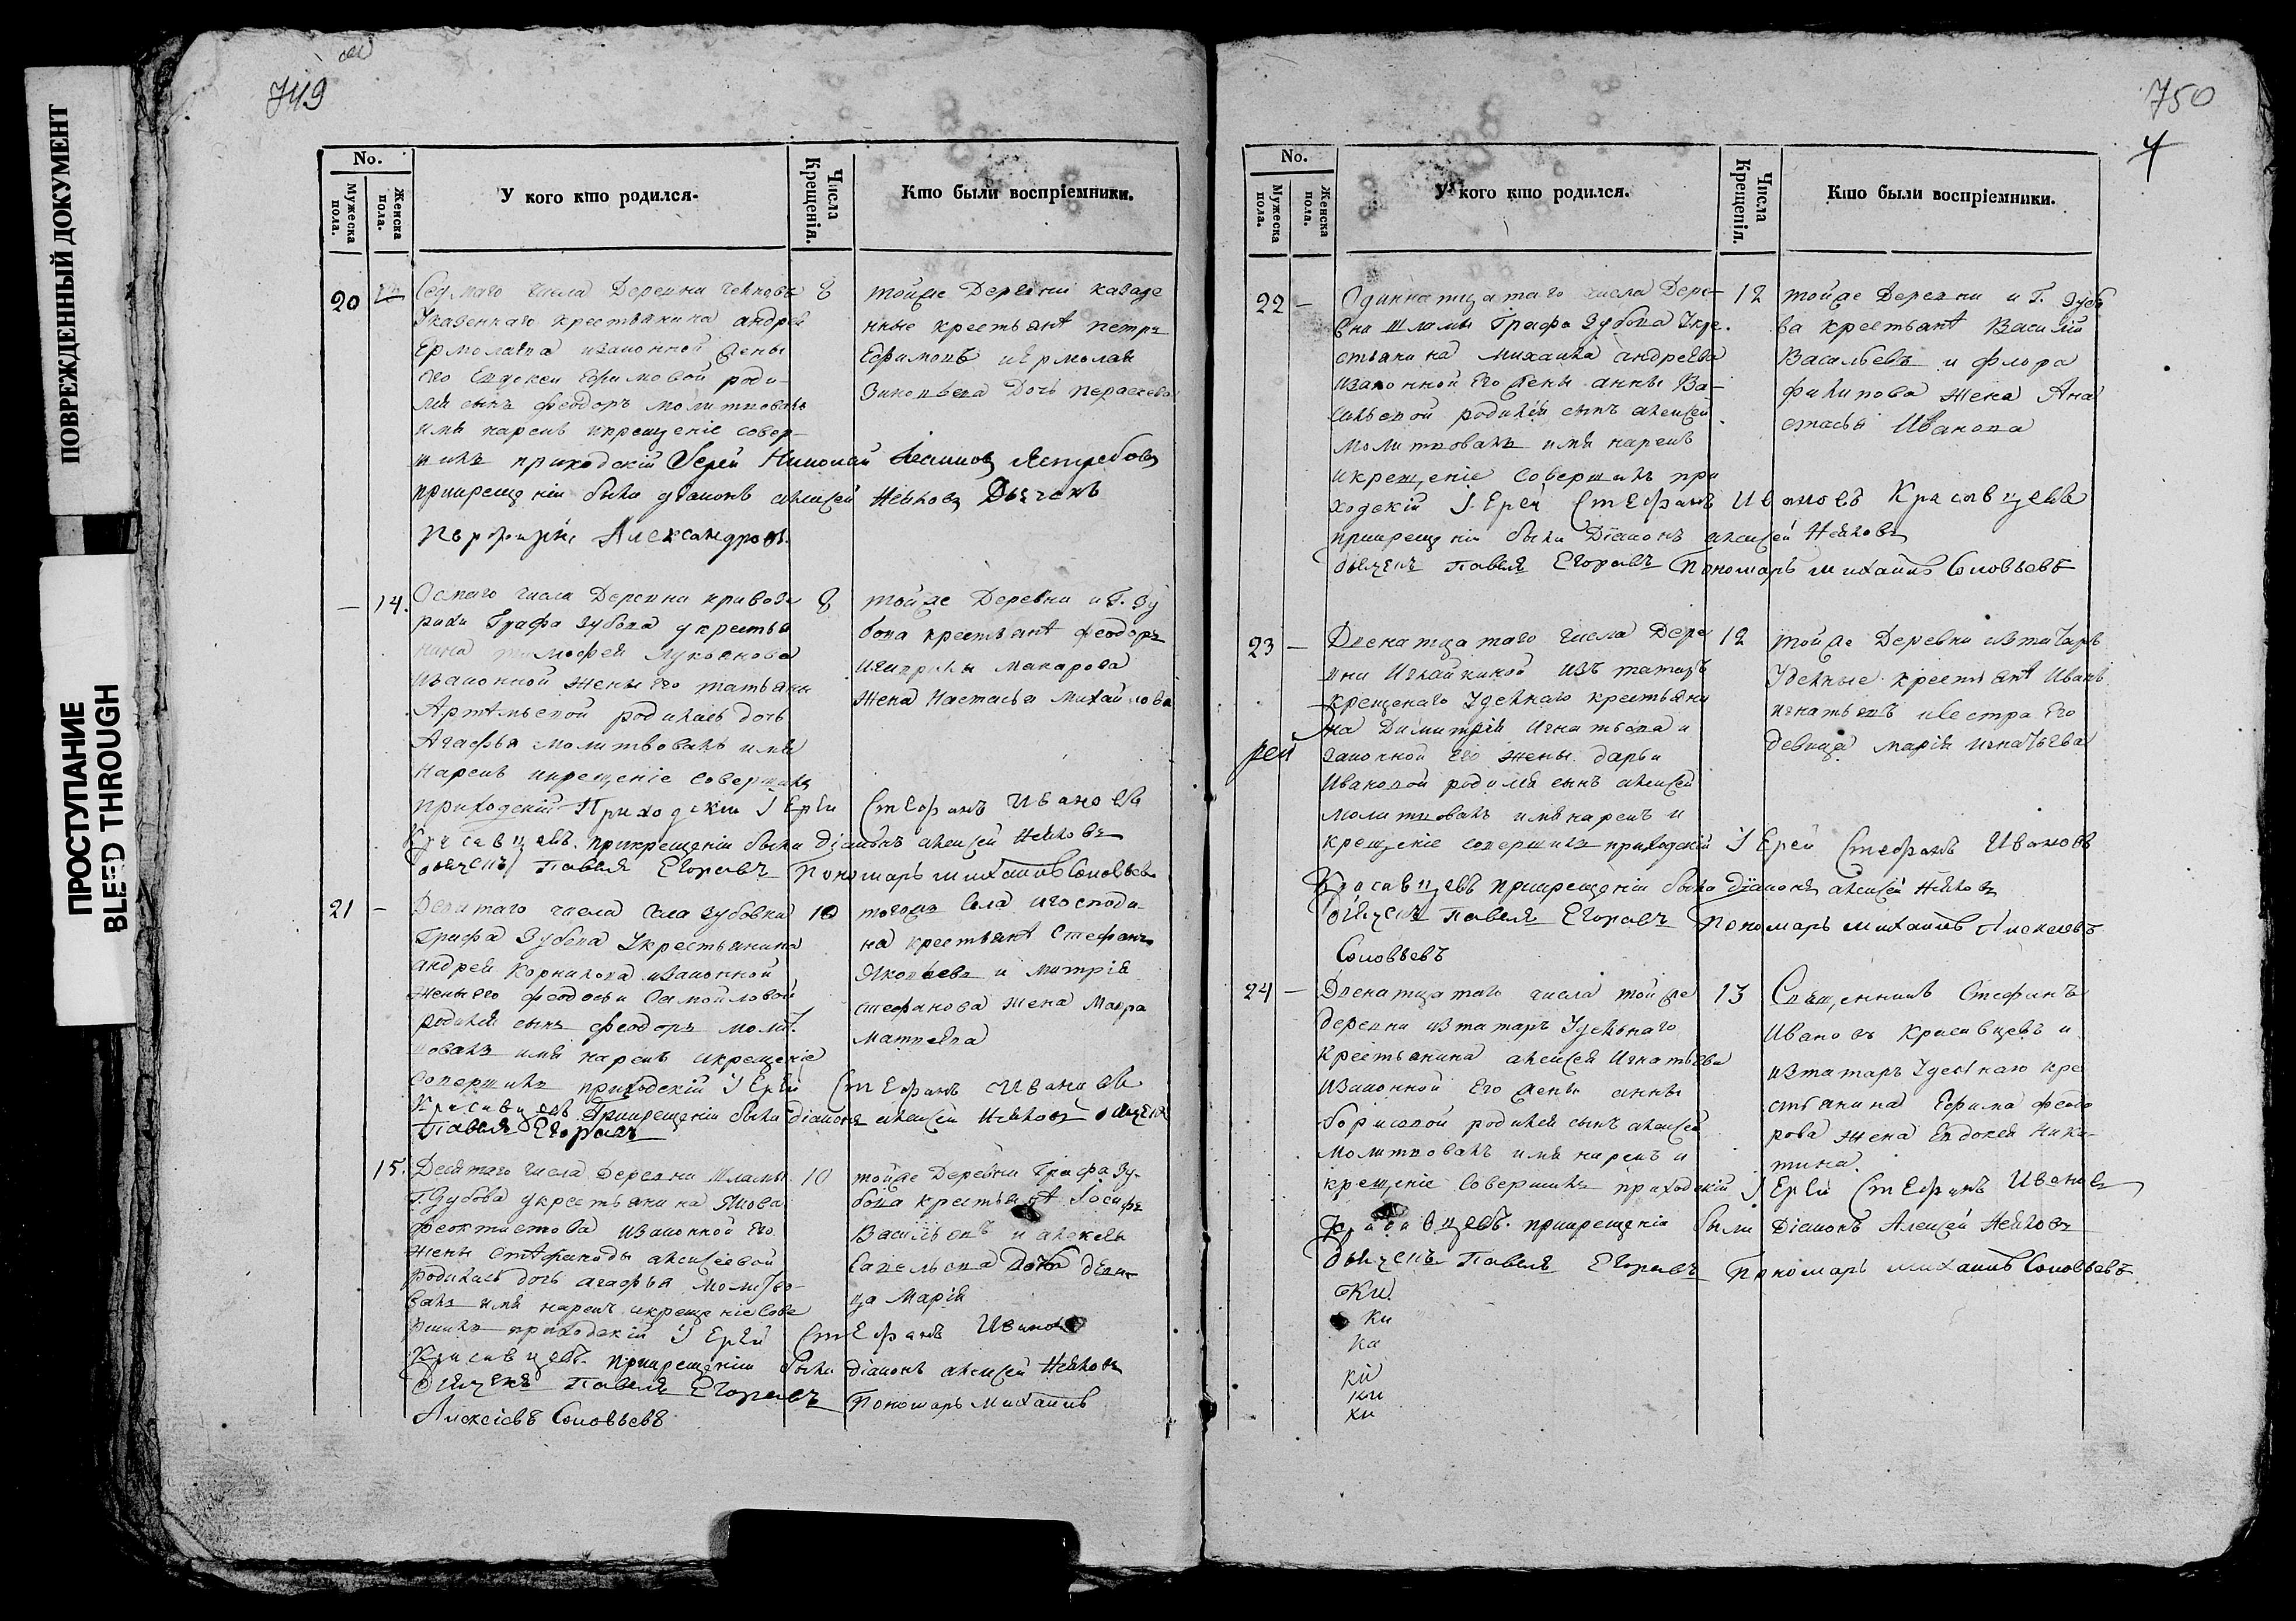 ПОВРЕЖДЕННЫЙ ДОКУМЕНТ
ПРОСТУПАНИЕ
BLEED THROUGH
749
No.
Мужеска пола.
Женска пола.
У кого кто родился.
Числа Крещенія.
Кто были воспріемники.
20
Седмаго числа Деревни 8
Указеннаго крестьянина андрея
Ермолаева изаконной жены
его Евдокеи Ефимовой роди-
лся сынъ феодоръ молитвовалъ
имя нарекъ икрещеніе совер-
шилъ приходскій Іерей Николай
прикрещеніи были діаконъ алексей Дьячекъ
Александровъ
тойже Деревни казаде
нные крестьянѣ петръ
Ефимовъ иермолая
Зиновьева Дочь
14.
Осмаго числа Деревни кривозе 8
рики Графа Зубова укрестья
нина тимофея лукоянова
изаконной жены его татьяны
Артѣмьевой родилась дочь
Агафья молитвовалъ имя
Нарекъ икрещеніе совершилъ
приходскій Приходскій Іерей Стефанъ Ивановъ
Красавцевъ. прикрещеніи были Діаконъ алексей
дьячекъ Павелъ Егоровъ Пономарь михаилъ Соловьевъ
тойже Деревни иГ. Зу
бова крестьянѣ феодоръ
макарова
Жена Настасья михайлова
21 –
Девятаго числа села зубовки 10
Графа Зубова Укрестьянина
андрея Корнилова изаконной
жены его феодосьи Самойловой
родился сынъ феодоръ молит
вовалъ имя нарекъ икрещеніе
совершилъ приходскій Іерей Стефанъ Ивановъ
Красавцевъ. Прикрещеніи были діаконъ алексей дьячекъ
Павелъ Егоровъ
тогожъ села игосподи-
на крестьянѣ Стефанъ
Яковлевъ и митрія
стефанова жена Мавра
матвеева
15.
Десятаго числа Деревни Шламы 10
Г. Зубова укрестьянина Якова
феоктистова изаконной его
жены Стѣфаниды алексіевой
родилась дочь агафья молитво-
валъ имя нарекъ икрещеніе Сове
ршилъ приходскій Іерей Стефанъ Ивановъ
Красавцевъ. прикрещеніи были діаконъ алексей
дьячекъ Павелъ Егоровъ Пономарь Михаилъ
Алексіевъ Соловьевъ
тойже Деревни Графа Зу-
бова крестьянѣ Іосифъ
Васильевъ и алексея
Савельева дочь деви-
ца Марія
750
No.
Мужеска пола.
Женска пола.
У кого кто родился.
Числа Крещенія.
Кто были воспріемники.
22 –
Одиннатцатаго числа Дере- 12
вни шламы Графа Зубова Укре-
стьянина михаила андреева
изаконной его жены анны Ва-
сильевой родился сынъ алексей
молитвовалъ имя нарекъ
икрещеніе совершилъ при
ходскій Іерей Стефанъ Ивановъ Красавцевъ
прикрещеніи были Діаконъ алексей
дьячекъ Павелъ Егоровъ Пономарь михаилъ Соловьевъ
тойже Деревни и Г. Зубо
ва крестьянѣ Василій
Васильевъ и флора
филипова жена Ана
стасья Иванова
23 –
Двенатцатаго числа Дере 12
вни изъ татаръ
крещенаго Удельнаго крестьяни
на Димитрія Игнатьева и
законной его жены дарьи
Ивановой родился сынъ алексей
молитвовалъ имя нарекъ и
крещеніе совершилъ приходскій Іерей Стефанъ Ивановъ
Красавцевъ прикрещеніи были діаконъ алексей
дьячекъ Павелъ Егоровъ Пономарь михаилъ Алексіевъ
Соловьевъ
тойже Деревни изтатаръ
Удельные крестьянѣ Иванъ
игнатьевъ исестра его
девица марія игнатьева
24 –
Двенатцатаго числа тойже 13
деревни изтатаръ Удельнаго
Крестьянина алексея Игнатьева
изаконной его жены анны
борисовой родился сынъ алексей
молитвовалъ имя нарекъ и
крещеніе совершилъ приходскій Іерей Стефанъ Ивановъ
Красавцевъ. прикрещеніи были Діаконъ Алексей
дьячекъ Павелъ Егоровъ Пономарь михаилъ Соловьевъ
Священникъ Стефанъ
Ивановъ Красавцевъ и
изтатаръ Удельнаго кре
стьянина Ефима феодо
рова жена Евдокея Ники-
тина.
ки
ка
кй
ки
ки